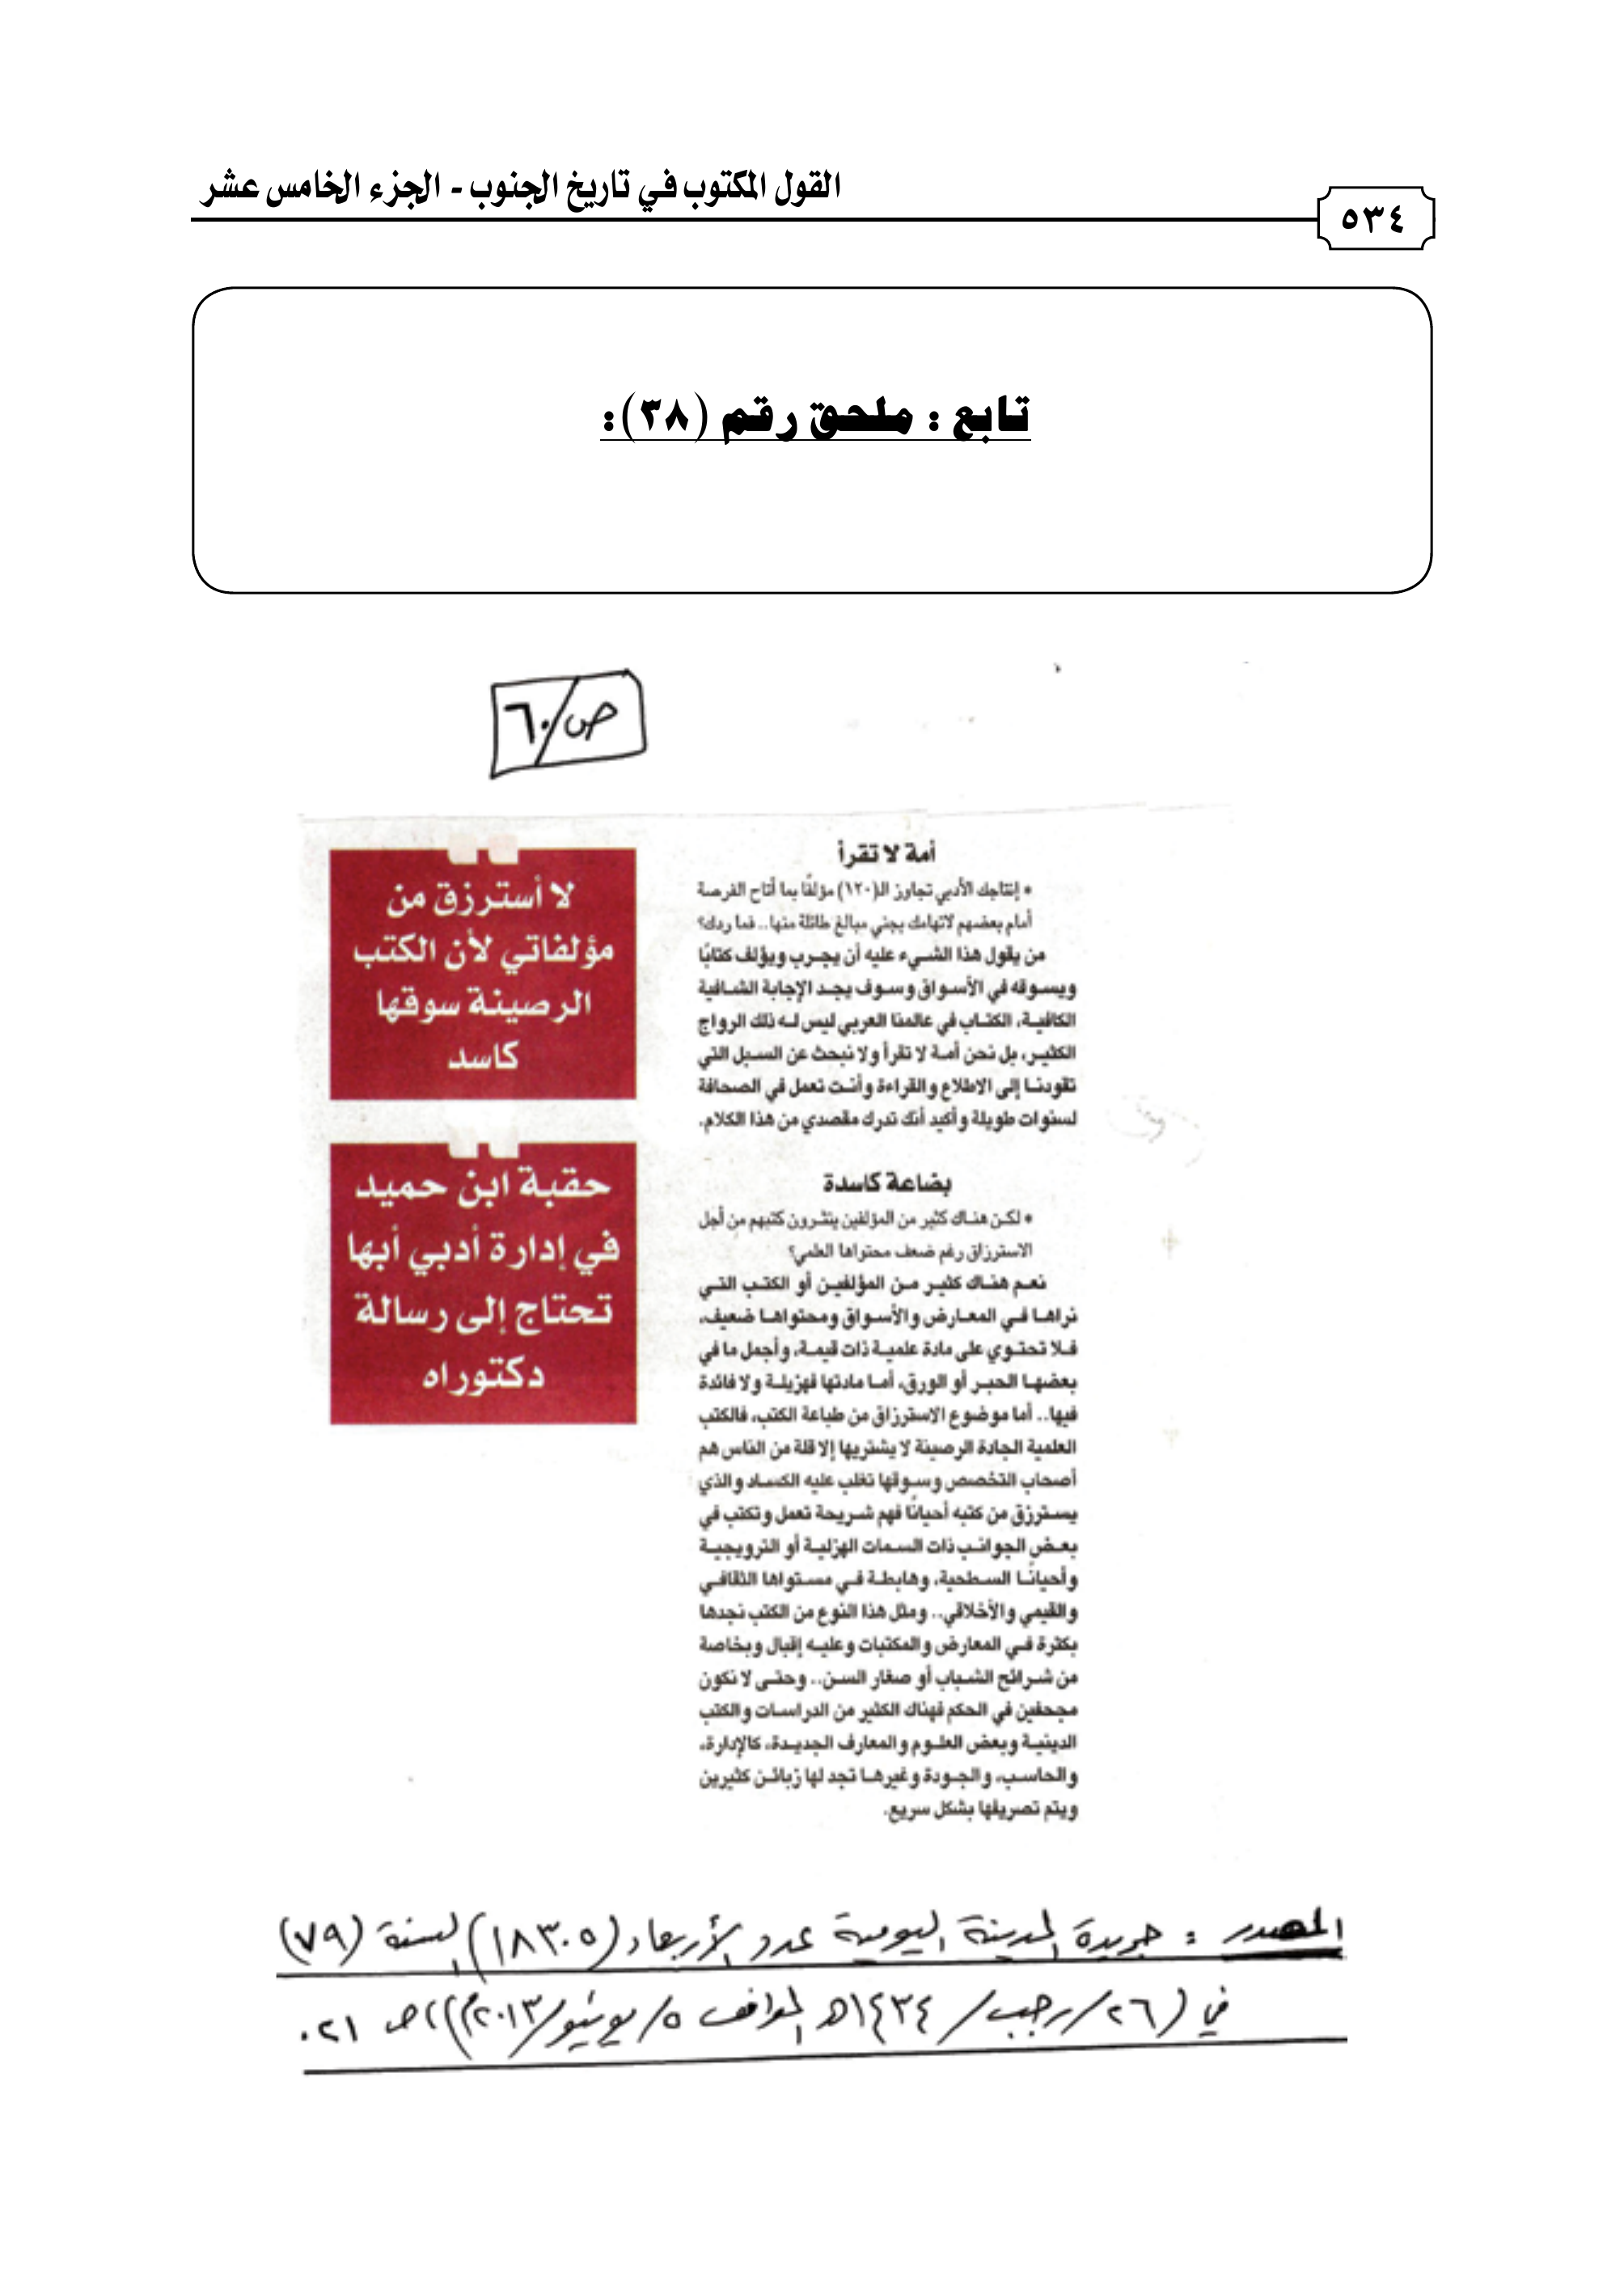 القول المكتوب في تاريخ الجنوب - الجزء الخامس عشر
٥٣٤
تابع : ملحق رقم (٣٨):
ص/٦٠
أمة لا تقرأ
* إنتاجك الأدبي تجاوز الـ(١٢٠) مؤلفًا بما أتاح الفرصة
أمام بعضهم لاتهامك بجني مبالغ طائلة منها.. فما ردك؟
من يقول هذا الشيء عليه أن يجرب ويؤلف كتابًا
ويسوقه في الأسواق وسوف يجد الإجابة الشافية
الكافية، الكتاب في عالمنا العربي ليس له ذلك الرواج
الكثير، بل نحن أمة لا تقرأ ولا نبحث عن السبل التي
تقودنا إلى الاطلاع والقراءة وأنت تعمل في الصحافة
لسنوات طويلة وأكيد أنك تدرك مقصدي من هذا الكلام.
بضاعة كاسدة
* لكن هناك كثير من المؤلفين ينثرون كتبهم من أجل
الاسترزاق رغم ضعف محتواها العلمي؟
نعم هناك كثير من المؤلفين أو الكتب التي
نراها في المعارض والأسواق ومحتواها ضعيف،
فلا تحتوي على مادة علمية ذات قيمة، وأجمل ما في
بعضها الحبر أو الورق، أما مادتها فهزيلة ولا فائدة
فيها.. أما موضوع الاسترزاق من طباعة الكتب، فالكتب
العلمية الجادة الرصينة لا يشتريها إلا قلة من الناس هم
أصحاب التخصص وسوقها تغلب عليه الكساد والذي
يسترزق من كتبه أحيانًا فهم شريحة تعمل وتكتب في
بعض الجوانب ذات السمات الهزلية أو الترويجية
وأحيانًا السطحية، وهابطة في مستواها الثقافي
والقيمي والأخلاقي.. ومثل هذا النوع من الكتب نجدها
بكثرة في المعارض والمكتبات وعليه إقبال وبخاصة
من شرائح الشباب أو صغار السن.. وحتى لا نكون
مجحفين في الحكم فهناك الكثير من الدراسات والكتب
الدينية وبعض العلوم والمعارف الجديدة، كالإدارة،
والحاسب، والجودة وغيرها تجد لها زبائن كثيرين
ويتم تصريفها بشكل سريع.
لا أسترزق من
مؤلفاتي لأن الكتب
الرصينة سوقها
كاسد
حقبة ابن حميد
في إدارة أدبي أبها
تحتاج إلى رسالة
دكتوراه
المصدر : جريدة المدينة اليومية عدد الأربعاء (١٨٣٠٥) السنة (٧٩)
في (٢٦/رجب/١٤٣٤هـ الموافق ٥/يونيو/٢٠١٣م)، ص ٢١.